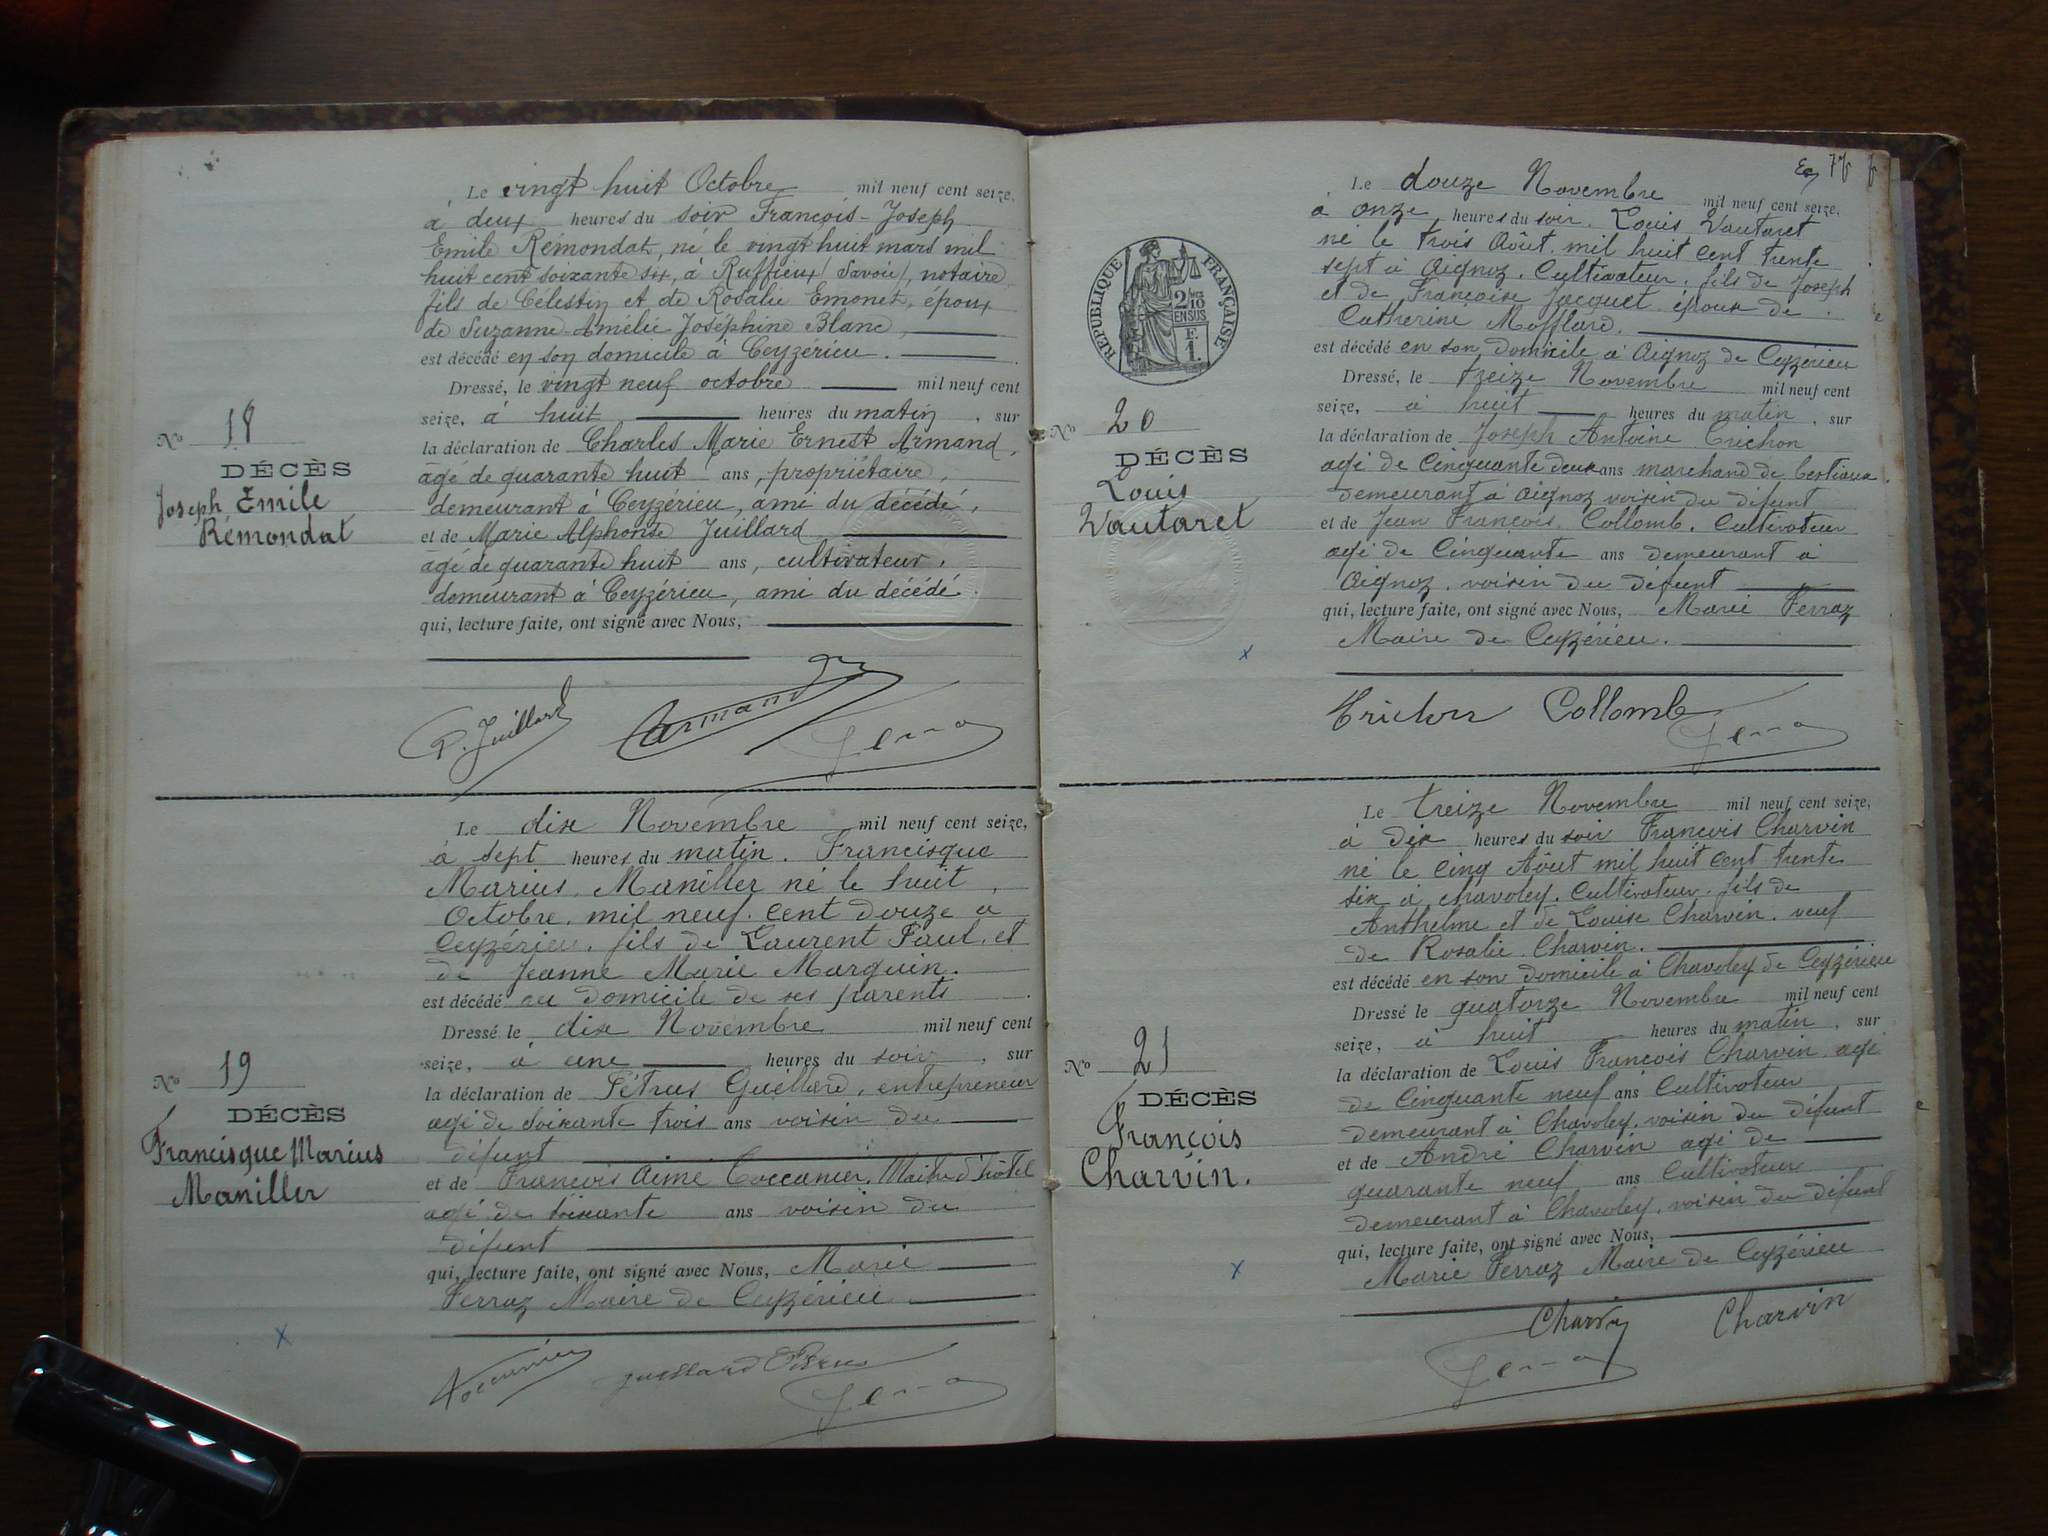 Le vingt huit Octobre mil neuf cent seize,
à deux heures du soir François-Joseph
Emile Rémondat, né le vingt huit mars mil
huit cent soixante six, à Ruffieux (Savoie), notaire
fils de Célestin et de Rosalie Emonet, époux
de Suzanne Amélie Joséphine Blanc,
est décédé en son domicile à Ceyzérieu.
Dressé, le vingt neuf octobre mil neuf cent
seize, à huit heures du matin, sur
la déclaration de Charles Marie Ernest Armand,
âgé de quarante huit ans, propriétaire,
demeurant à Ceyzérieu, ami du décédé,
et de Marie Alphonse Juillard
âgé de quarante huit ans, cultivateur,
demeurant à Ceyzérieu, ami du décédé.
qui, lecture faite, ont signé avec Nous,
No 18
DÉCÈS
Joseph Emile
Rémondat
Juillard Armand
Le dix Novembre mil neuf cent seize,
à sept heures du matin. Francisque
Marius, Maniller né le huit
Octobre, mil neuf cent douze a
Ceyzérieu, fils de Laurent Paul, et
de Jeanne Marie Marguin.
est décédé au domicile de ses parents
Dressé le dix Novembre mil neuf cent
seize, à une heures du soir, sur
la déclaration de Pétrus Guillard, entrepreneur
agé de soixante trois ans voisin du
défunt
et de François Aimé Coccanier, Maitre d'hôtel
agé de soixante ans voisin du
défunt
qui, lecture faite, ont signé avec Nous, Marie
Ferraz Maire de Ceyzérieu.
No 19
DÉCÈS
Francisque Marius
Maniller
77
Le douze Novembre mil neuf cent seize,
à onze heures du soir. Louis Vautaret
né le trois Août mil huit cent trente
sept à Aignoz. Cultivateur, fils de Joseph
et de Françoise Jacquet époux de
Catherine Mofflard.
est décédé en son domicile à Aignoz de Ceyzérieu
Dressé, le treize Novembre mil neuf cent
seize, à huit heures du matin, sur
la déclaration de Joseph Antoine Trichon
agé de Cinquante deux ans marchand de bestiaux
demeurant à Aignoz voisin du défunt
et de Jean François Collomb, Cultivateur
agé de Cinquante ans demeurant à
Aignoz, voisin du défunt
qui, lecture faite, ont signé avec Nous, Marie Ferraz
Maire de Ceyzérieu.
RÉPUBLIQUE FRANÇAISE
2/10
EN SUS
1.
No 20
DÉCÈS
Louis
Vautaret
Trichon Collomb
Le treize Novembre mil neuf cent seize,
à dix heures du soir François Charvin
né le cinq Août mil huit cent trente
six à Chavoley, Cultivateur, fils de
Anthelme et de Louise Charvin, veuf
de Rosalie Charvin.
est décédé en son domicile à Chavoley de Ceyzérieu
Dressé le quatorze Novembre mil neuf cent
seize, à huit heures du matin, sur
la déclaration de Louis François Charvin agé
de Cinquante neuf ans Cultivateur
demeurant à Chavoley, voisin du défunt
et de André Charvin agé de
quarante neuf ans Cultivateur
demeurant à Chavoley, voisin du défunt
qui, lecture faite, ont signé avec Nous,
Marie Ferraz Maire de Ceyzérieu
No 21
DÉCÈS
François
Charvin.
Charvin Charvin